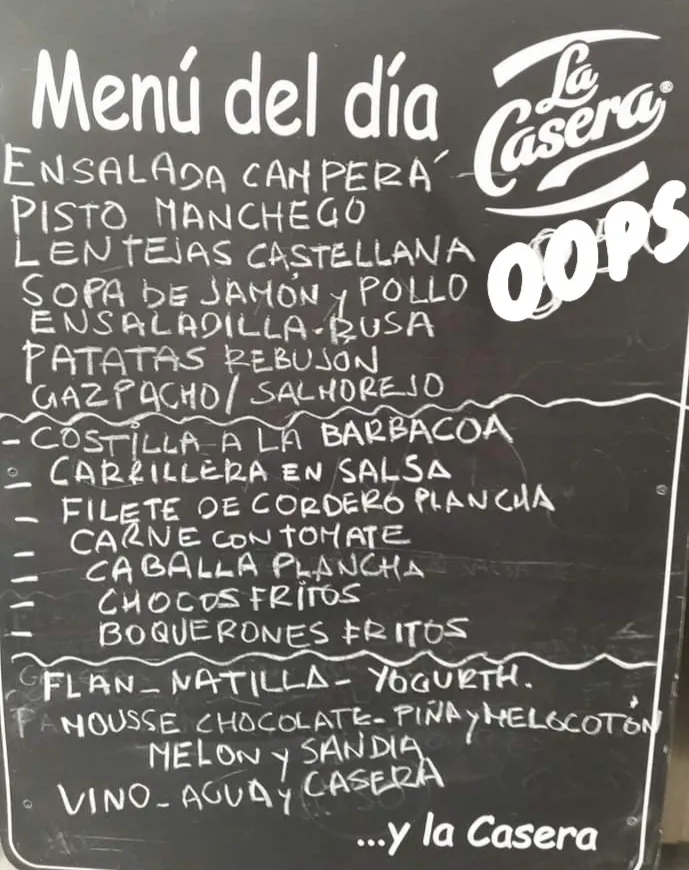 Menú del día
La Casera®
OOPS
ENSALADA CAMPERA
PISTO MANCHEGO
LENTEJAS CASTELLANA
SOPA DE JAMÓN y POLLO
ENSALADILLA-RUSA
PATATAS REBUJON
GAZPACHO/ SALMOREJO
- COSTILLA A LA BARBACOA
- CARRILLERA EN SALSA
- FILETE DE CORDERO PLANCHA
- CARNE CON TOMATE
- CABALLA PLANCHA
- CHOCOS FRITOS
- BOQUERONES FRITOS
FLAN - NATILLA - YOGURTH.
MOUSSE CHOCOLATE - PIÑA y MELOCOTÓN
MELON y SANDIA
VINO - AGUA y CASERA
...y la Casera